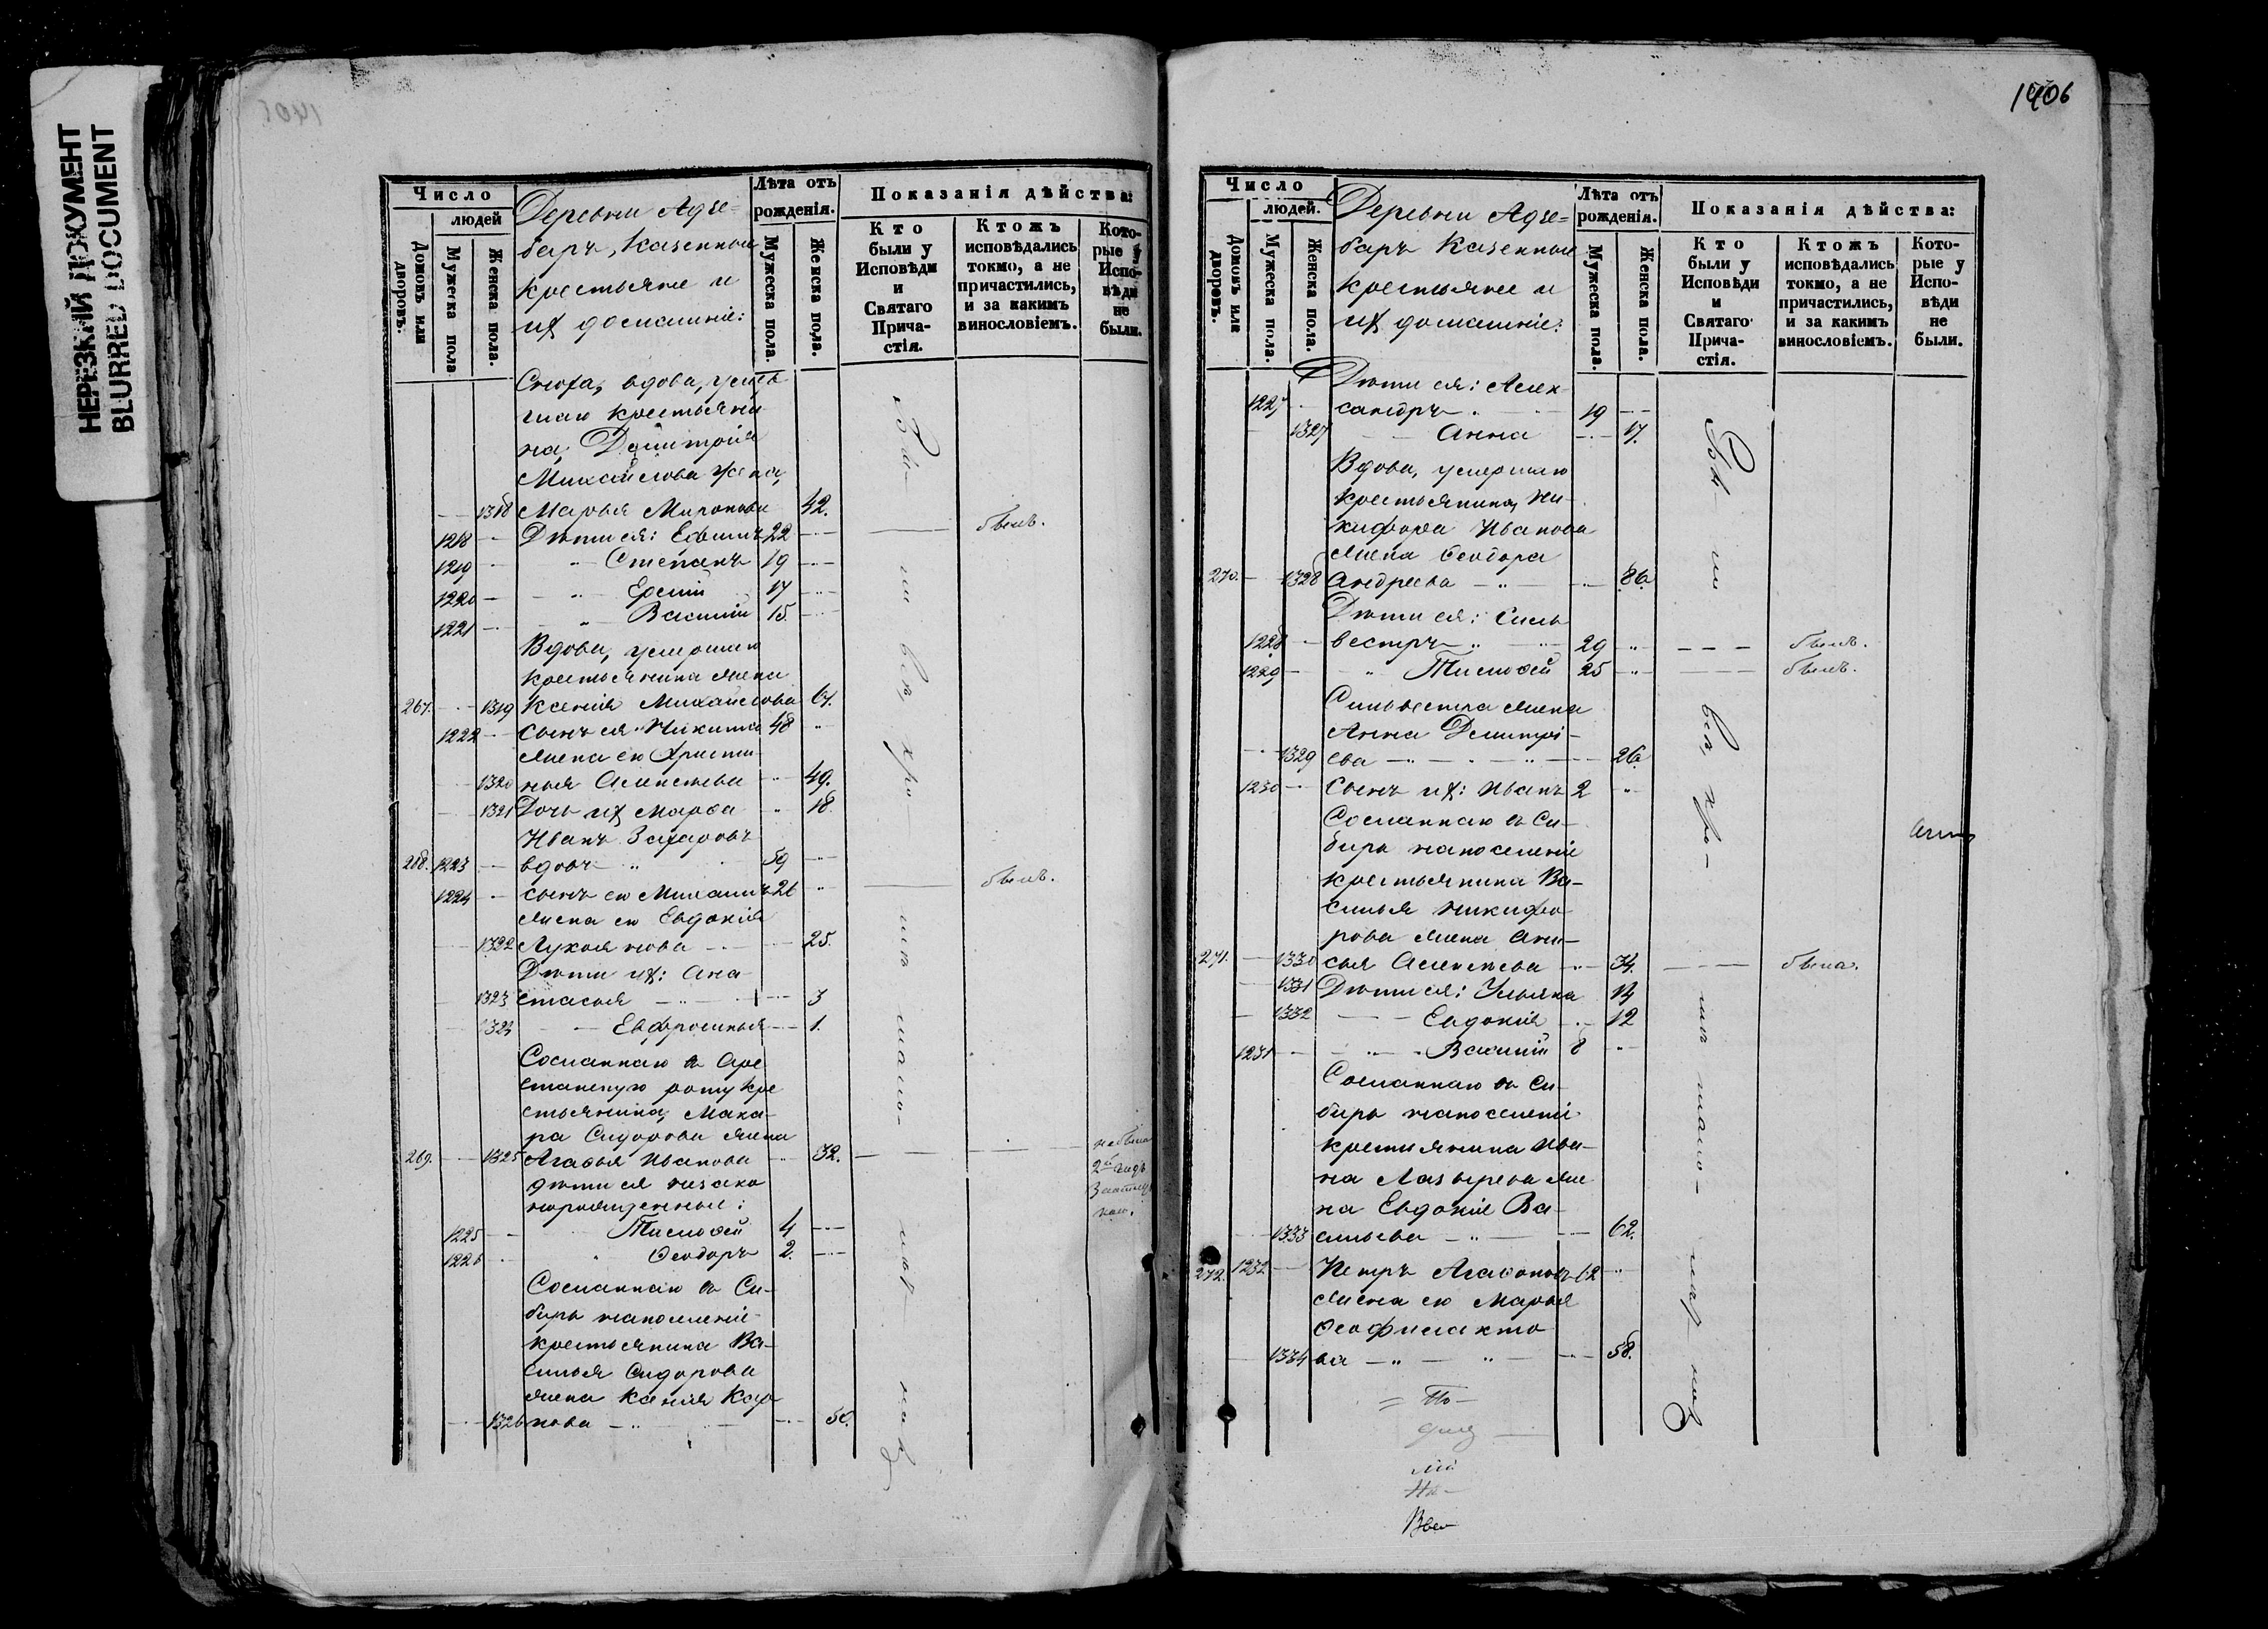 НЕРЕЗКИЙ ДОКУМЕНТ
BLURRED DOCUMENT
Число
людей
Домовъ или дворовъ.
Мужеска пола
Женска пола.
Деревни Адзе-
баръ, Казенные
крестьяне и
ихъ домашніе:
Лѣта отъ
рожденія.
Мужеска пола.
Женска пола.
Показанія дѣйства:
Кто
были у
Исповѣди
и
Святаго
Прича-
стія.
Ктожъ
исповѣдались
токмо, а не
причастились,
и за какимъ
винословіемъ.
Кото-
рые у
Испо-
вѣди
не
были.
Сноха, вдова, умер
шаго крестьяни
на, Димитрія
Михайлова жена,
1318 Марья Миронова 42.
1218 Дѣти ея: Ефимъ 22 былъ.
1219 Степанъ 19
1220 17
1221 Василій 15
Вдова, умершаго
крестьянина жена
267. 1319 Ксенія Михайлова 67.
1222 Сынъ ея Никита 48
жена его Христи
1320 нья Алексѣева 49.
1321 Дочь ихъ Марѳа 18.
Иванъ Захаровъ
268. 1223 вдовъ 59
1224 сынъ его Михаилъ 26 былъ.
жена его Евдокія
1322 Лукоянова 25.
Дѣти ихъ: Ана
1323 стасья 3
1324 Евфросинья 1.
Сосланнаго въ Аре
станскую роту кре
стьянина, Мака-
ра Сидорова жена
269. 1325 Агаѳья Иванова 32. не была
2й годъ
дѣти ея незако
норожденные:
1225 Тимоѳей 4
1226 Ѳеодоръ 2.
Сосланнаго въ Си-
бирь на поселеніе
крестьянина Ва-
силья Сидорова
жена Ксенія Кар
1326 пова 50.
1406
Число
людей.
Домовъ или дворовъ.
Мужеска пола.
Женска пола.
Деревни Адзе=
баръ Казенные
крестьяне и
ихъ домашніе:
Лѣта отъ
рожденія.
Мужеска пола.
Женска пола.
Показанія дѣйства:
Кто
были у
Исповѣди
и
Святаго
Прича-
стія.
Ктожъ
исповѣдались
токмо, а не
причастились,
и за какимъ
винословіемъ.
Кото-
рые у
Испо-
вѣди
не
были.
Дѣти ея: Алек
1227 сандръ 19
1327 Анна 17.
Вдова, умершаго
крестьянина, Ни-
кифора Иванова
жена Ѳеодора
270. 1328 Андреева 86.
Дѣти ея: Силь
1228 вестръ 29 былъ.
1229 Тимоѳей 25 былъ.
Сильвестра жена
Анна Димитрі-
1329 ева 26.
1230 Сынъ ихъ: Иванъ 2
Сосланнаго въ Си-
бирь на поселеніе
крестьянина Ва-
силья Никифо-
рова жена Ани-
271. 1330 сья Алексѣева 34. была.
1331 Дѣти ея: Ульяна 14
1332 Евдокія 12
1231 Василій 8
Сосланнаго въ Си-
бирь на поселеніе
крестьянина Ива-
на Лазырева же
на Евдокія Ва-
1333 сильева 62.
272. 1232 Петръ Агаѳоновъ 62
жена его Марья
Ѳеофилакто
1334 ва 58.